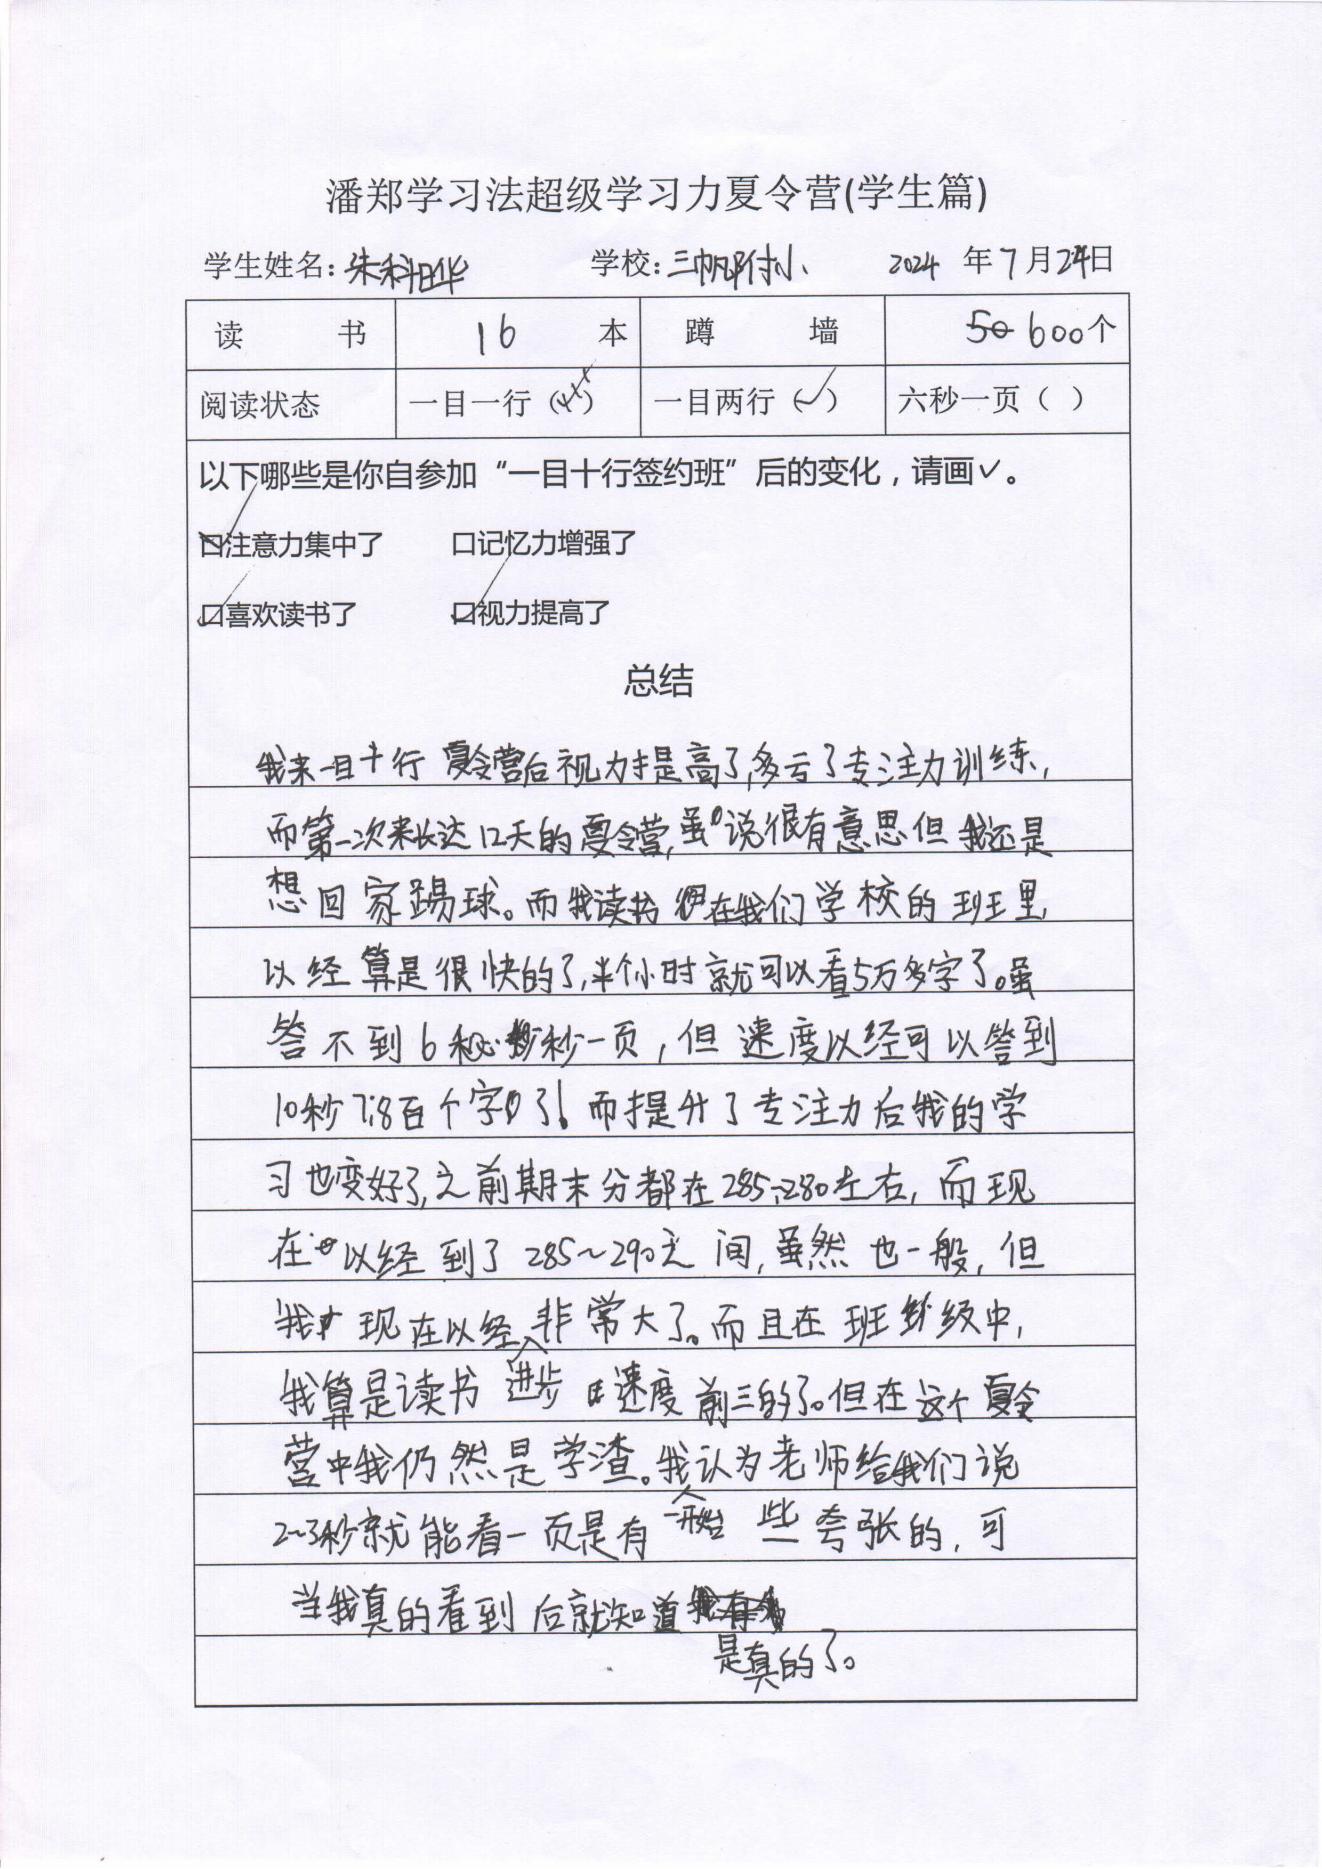 潘郑学习法超级学习力夏令营(学生篇)
学生姓名:朱科晔 学校:三帆附小 2024 年7月24日
读 书 16 本 蹲 墙 600个
阅读状态 一目一行( ) 一目两行(✓) 六秒一页( )
以下哪些是你自参加“一目十行签约班”后的变化，请画✓。
☑注意力集中了 口记忆力增强了
☑喜欢读书了 ☑视力提高了
总结
我来一目十行 夏令营后视力提高了,多亏了专注力训练,
而第一次来长达12天的夏令营,虽说很有意思但我还是
想回家踢球。而我读书在我们学校的班里
以经算是很快的了,半个小时就可以看5万多字了。虽
答不到6秒一页,但速度以经可以答到
10秒7.8百个字了!而提升了专注力后我的学
习也变好了,之前期末分都在285、280左右,而现
在以经到了285~290之间,虽然也一般,但
我现在以经进步非常大了。而且在班级中,
我算是读书速度前三的了。但在这个夏令
营中我仍然是学渣。我认为老师给我们说
2~3秒就能看一页是有一开始些夸张的,可
当我真的看到后就知道
是真的了。